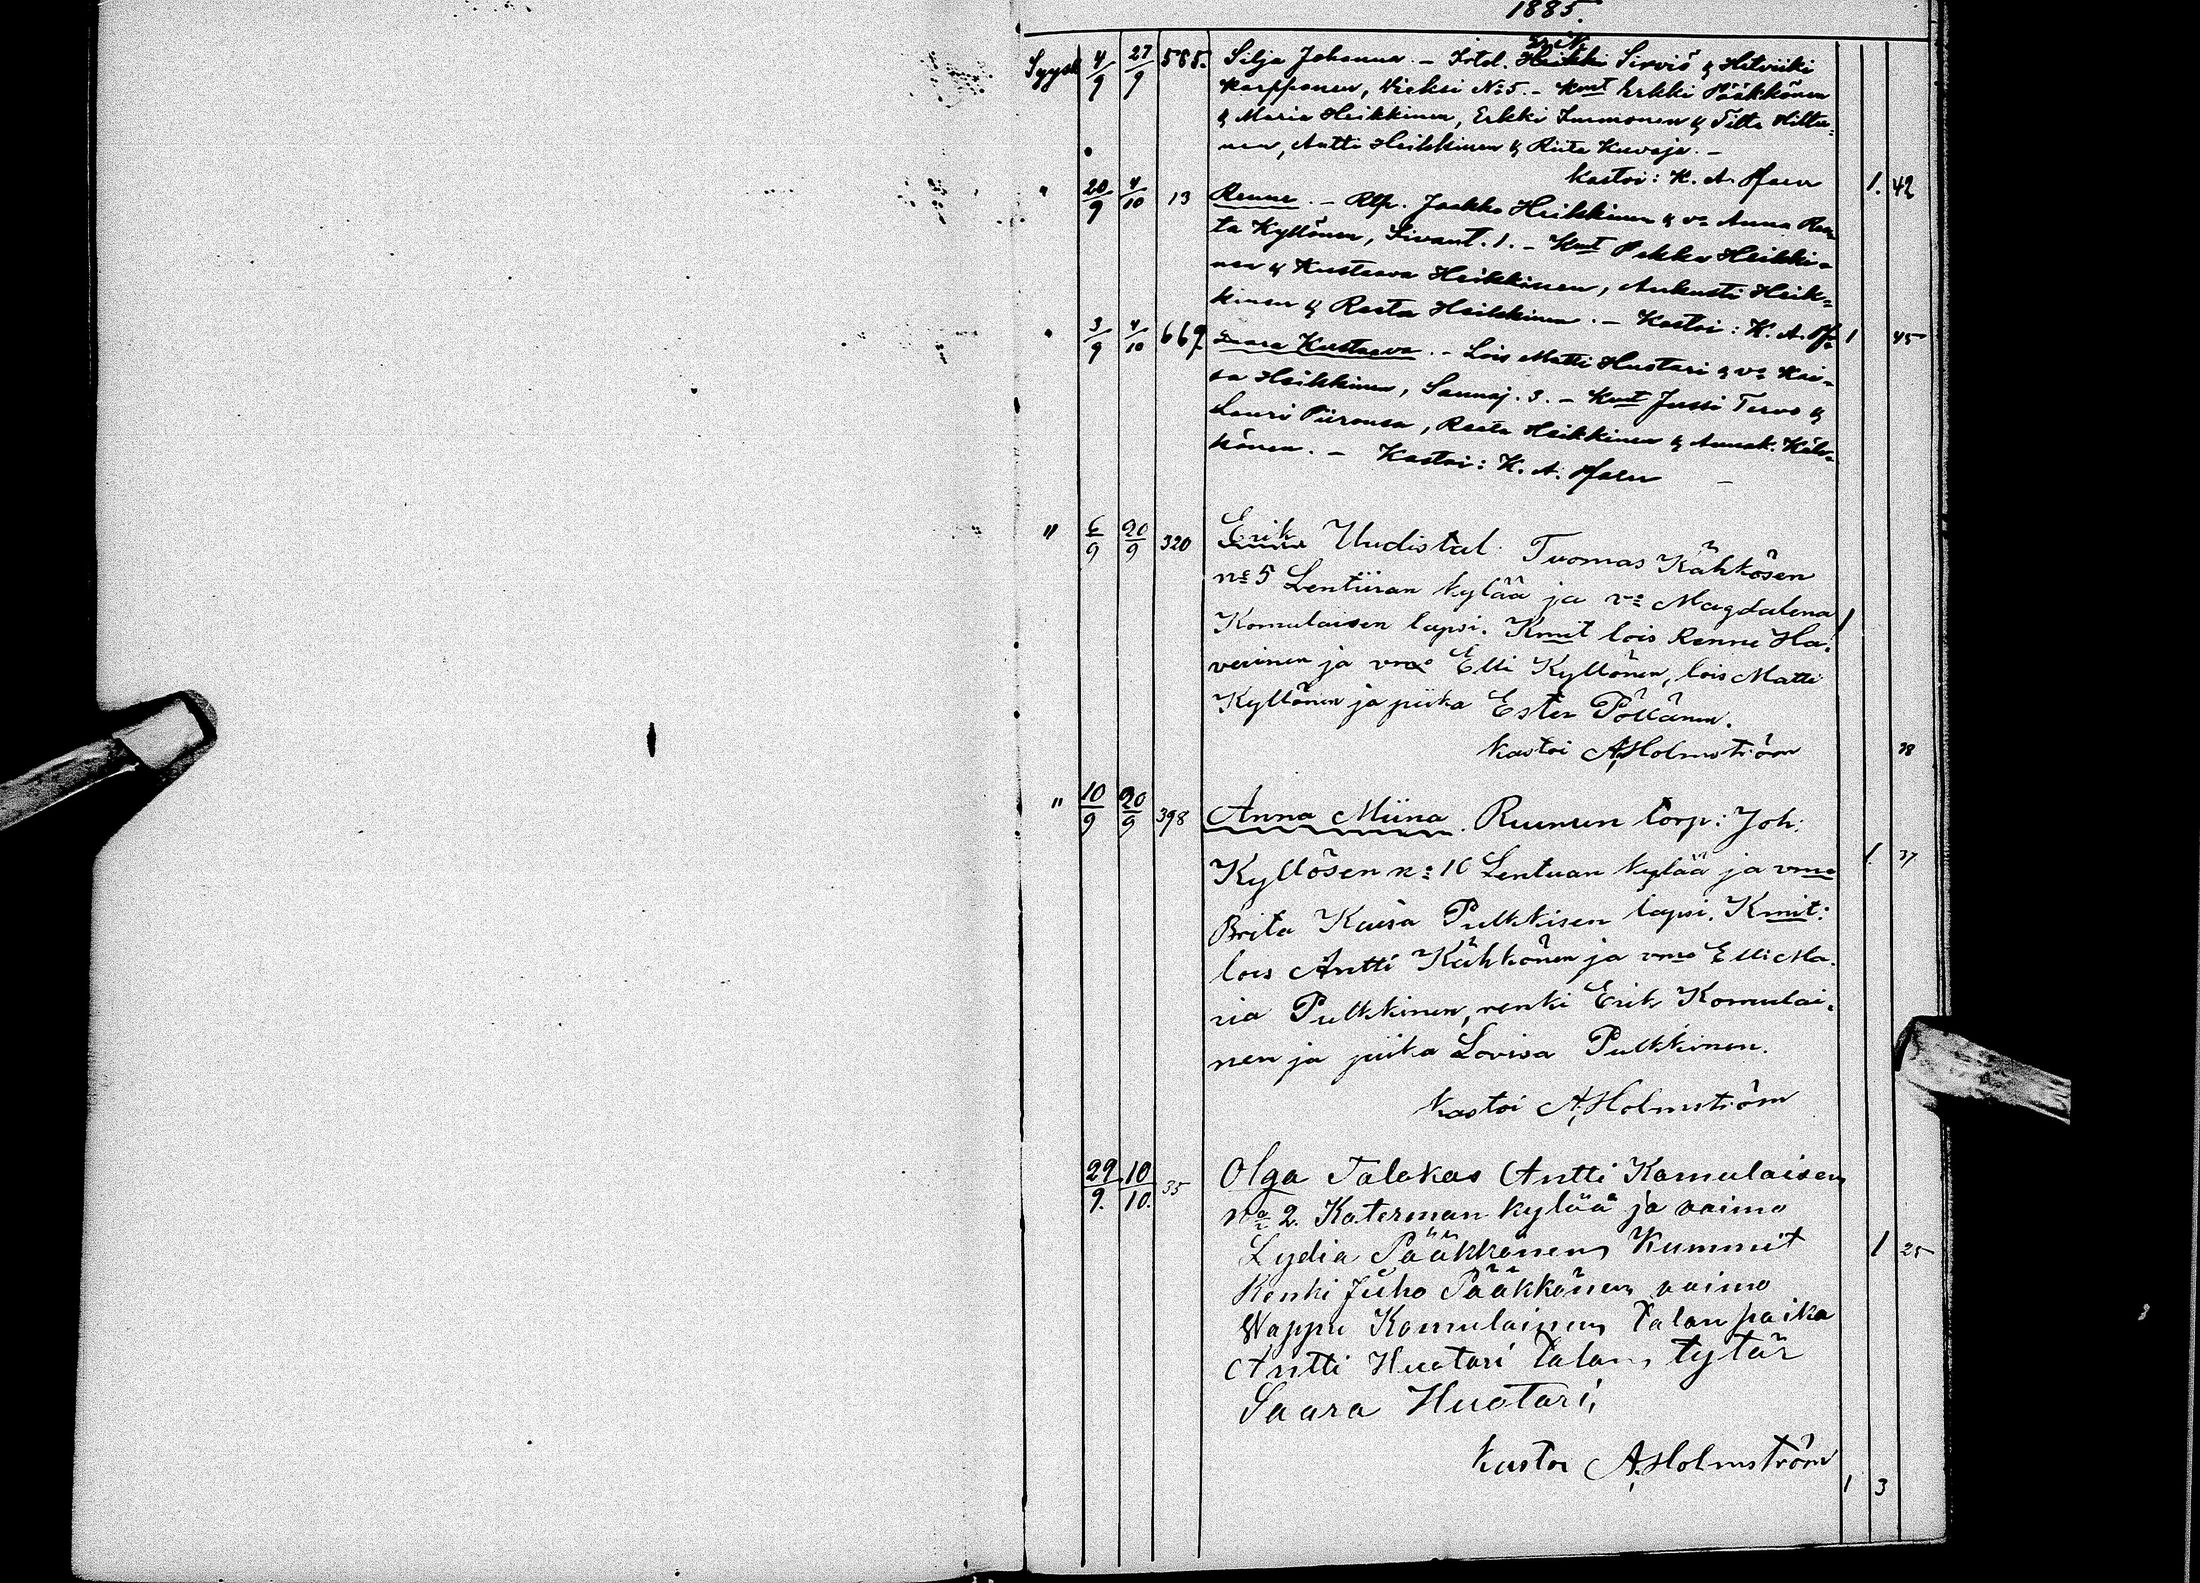 1885.
Syysk 4/9 27/9 585. Silja Johanna. – Irtol. Heikki Erik Serviö & Hetviiki
Karpponen, Vieksi No 5. – Kmt Erkki Pääkkönen
& Maria Heikkinen, Erkki Immonen & Hiltu-
nen, Antti Heikkinen & Riita Kuvaja. –
Kastoi: K. A. 1. 42
" 20/9 4/10 13 Renne. – Rlp. Jaakko Heikkinen & vo Anna Ree-
ta Kyllönen, 1. – Kmt Pekka Heikki-
nen & Kustaava Heikkinen, Aukusti Heik-
kinen & Reeta Heikkinen. – Kastoi: K. A. 1 45
" 3/9 4/10 669 Kustaava. – Lois Matti Huotari & vo Kai-
sa Heikkinen, Saunaj. 3. – Kmt Jussi Tervo &
Lauri Piironen, Reeta Heikkinen & Annak. Käh-
könen. – Kastoi: K. A.
" 6/9 20/9 320 Erik Uudistal. Tuomas Kähkösen
no 5 Lentiiran kylää ja vo Magdalena 1
Komulaisen lapsi. Kmit lois Renne Ha-
verinen ja vmo Elli Kyllönen, lois Matti
Kyllönen ja piika Ester Pöllänen.
Kastoi A. Holmström 38
" 10/9 20/9 398 Anna Miina. Ruunun torp: Joh:
Kyllösen no: 10 Lentuan kylää ja vmo 1. 37
Brita Kaisa Pulkkisen lapsi. Kmit:
lois Antti Kähkönen ja vmo Elli Ma-
ria Pulkkinen, renki Erik Komulai-
nen ja piika Lovisa Pulkkinen.
Kastoi A. Holmström
29/9. 10/10. 35 Olga Talokas Antti Komulaisen
No 2. Katerman kylää ja vaimo
Lydia Pääkkönen, Kummit 1 25
Renki Juho Pääkkönen, vaimo
Wappu Komulainen, Talan poika
Antti Huotari talan, tytär
Saara Huotari,
Kastoi A. Holmström
1 3